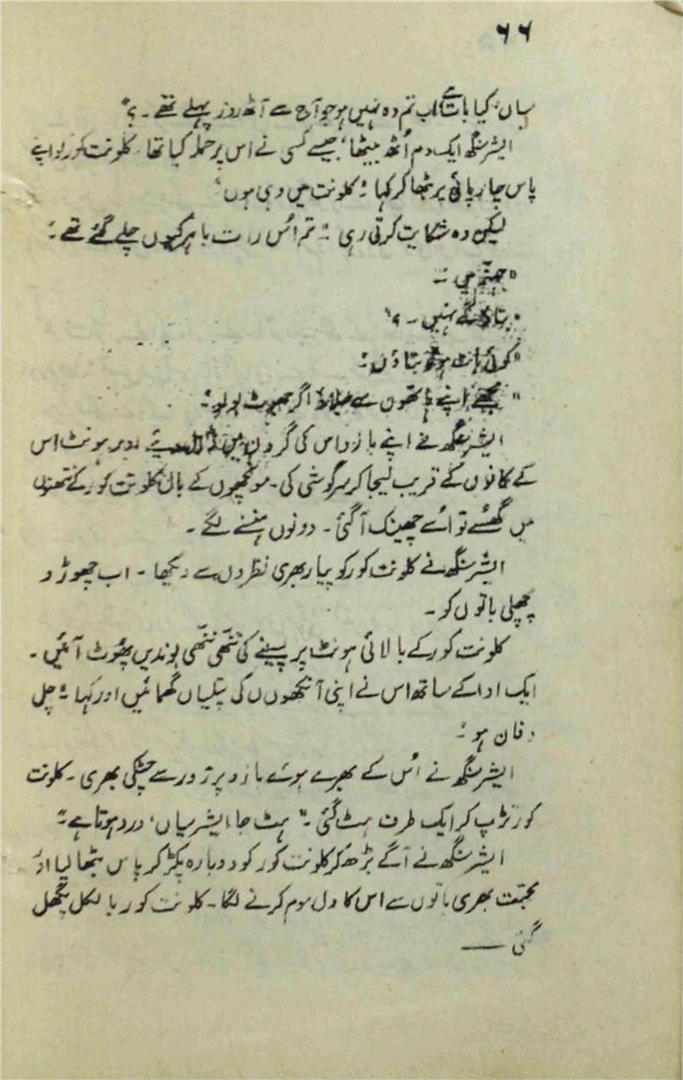 ۶۶
سیاں، کیا بات ہے اب تم وہ نہیں ہو جو آج سے آٹھ روز پہلے تھے۔؟"
ایشر سنگھ ایک دم اُٹھ بیٹھا، جیسے کسی نے اس پر حملہ کیا تھا۔ کلونت کور کو اپنے
پاس چارپائی پر بٹھا کر کہا۔" کلونت میں وہی ہوں"
لیکن وہ شکایت کرتی رہی۔" تم اُس رات باہر کیوں چلے گئے تھے۔"
"جہنّم میں۔"
"بتاؤ گے نہیں۔؟"
"کوئی بات ہو تو بتاؤں۔"
"مجھے اپنے ہاتھوں سے جلاؤ اگر جھوٹ بولو۔"
ایشر سنگھ نے اپنے بازو اس کی گردن میں ڈال دیئے اور ہونٹ اس
کے کانوں کے قریب لیجا کر سرگوشی کی۔ مونچھوں کے بال کلونت کور کے نتھنوں
میں گھُسے تو اُسے چھینک آ گئی۔ دونوں ہنسنے لگے۔
ایشر سنگھ نے کلونت کور کو پیار بھری نظروں سے دیکھا۔ اب چھوڑو
پچھلی باتوں کو۔
کلونت کور کے بالائی ہونٹ پر پسینے کی ننّھی ننّھی بوندیں پھُوٹ آئیں۔
ایک ادا کے ساتھ اس نے اپنی آنکھوں کی پتلیاں گھمائیں اور کہا۔" چل
دفان ہو۔"
ایشر سنگھ نے اُس کے بھرے ہوئے بازو پر زور سے چٹکی بھری۔ کلونت
کور تڑپ کر ایک طرف ہٹ گئی۔" ہٹ جا، ایشر سیاں، درد ہوتا ہے"
ایشر سنگھ نے آگے بڑھ کر کلونت کور کو دوبارہ پکڑ کر پاس بٹھا لیا اور
محبّت بھری باتوں سے اس کا دل موم کرنے لگا۔ کلونت کور بالکل پگھل
گئی ——